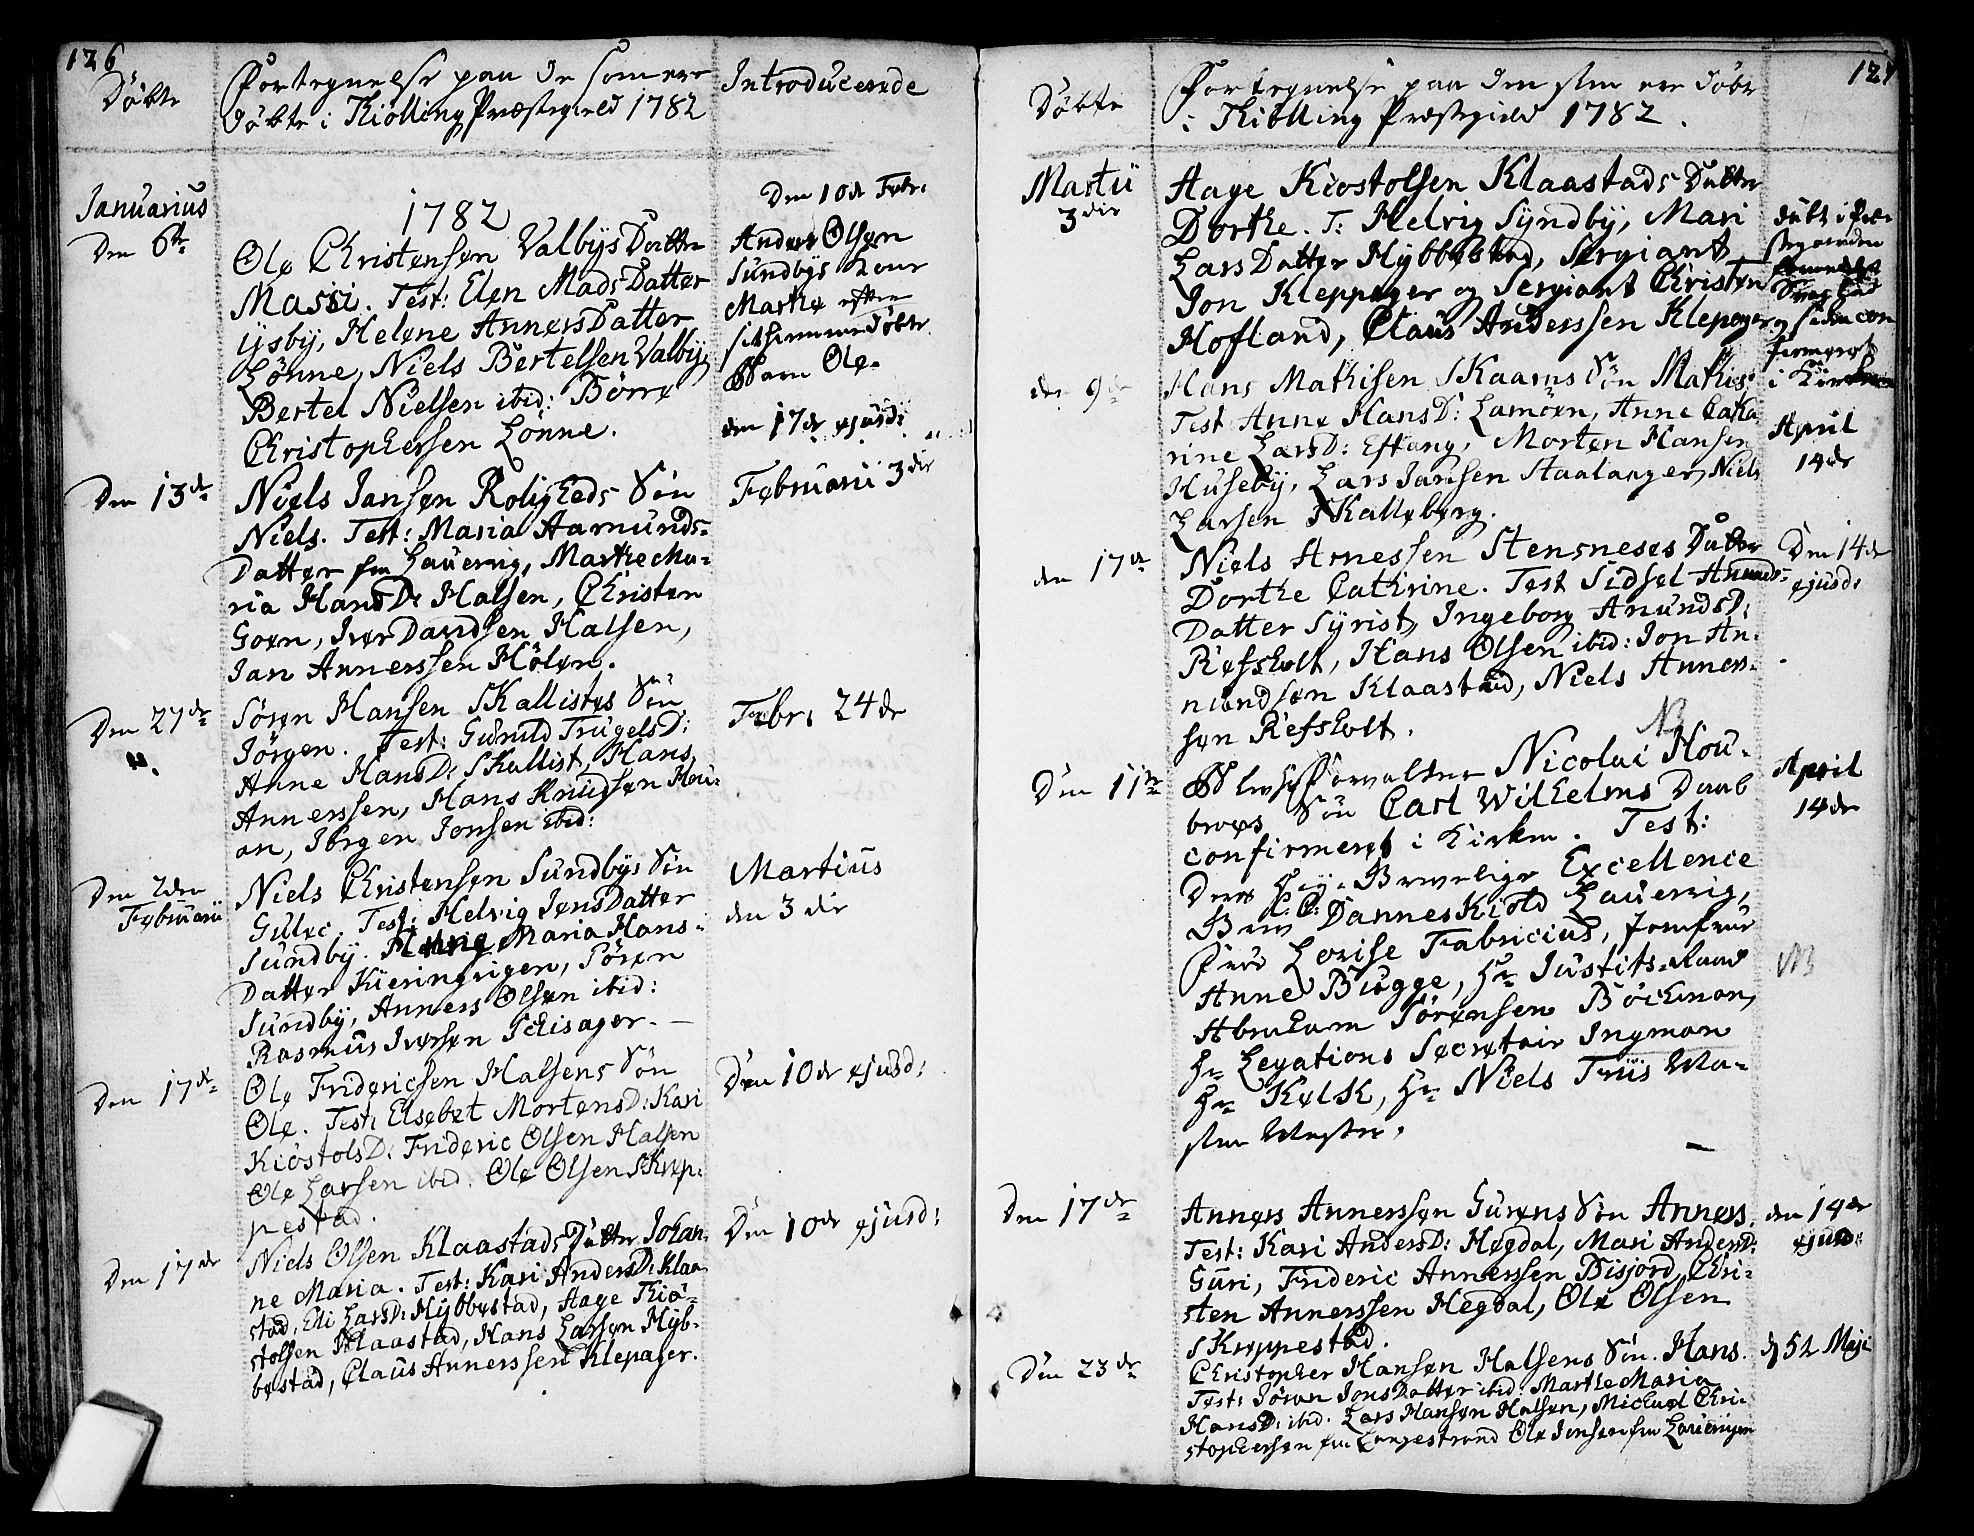 126
Döbte
Fortegnelse paa de som ere
döbte i Kiölling Præstegield 1782
Introducerede
Januarius
Den 6te
1782
Ole Christensen Valbÿs Datter
Massi. Test: Elen Mads Datter
Ÿsbÿ, Helene Anners Datter
Lönne, Niels Bertelsen Valbÿ,
Bertel Nielsen ibid: Börre
Christophersen Lönne.
Den 10de Febr:
Anders Olsen
Sundbÿs Kone
Marthe efter
sit hiemmedöbte
Barn Ole.
den 17de ejusd:
Den 13de
Niels Jansen Roligheds Sön
Niels. Test: Maria Aamunds-
Datter fra Lauervig, Marthe Ma-
ria Hans D: Halsen, Christen
Goen, Iver Davidsen Halsen,
Jan Annerssen Hölen.
Februarii 3die
Den 27de
Sören Hansen Skallistes Sön
Jörgen. Test: Gunild Trugels D:
Anne Hans D: Skallist, Hans
Annerssen, Hans Knudsen Hou-
an, Jörgen Jonsen ibid:
Febr: 24de
Den 2den
Februarii
Niels Christensen Sundbÿs Sön
Gulec. Test: Helvig Jens Datter
Sundbÿ. Maria Hans-
Datter Kieringvigen, Sören
Sundbÿ, Anners Olsen ibid:
Rasmus Iversen Schisager.
Martius
den 3die
Den 17de
Ole Fridericsen Halsens Sön
Ole. Test: Elsebet Mortens D: Kari
Kiöstols D: Frideric Olsen Halsen
Ole Larsen ibid. Ole Olsen Skrep-
pestad.
Den 10de ejusd:
Den 17de
Niels Olsen Klaastads Datter Johan-
ne Maria. Test: Kari Anders D: Klaa-
stad, Eli Lars D: Hÿbbestad, Aage Kiö-
stolsen Klaastad, Hans Larsen Hÿb-
bestad, Claus Annerssen Klepaker.
Den 10de ejusd:
127
Döbte
Fortegnelse paa dem som ere döbte
i Kiölling Præstegield 1782.
Martii
3die
Aage Kiostolsen Klaastads Datter
Dorthe. T: Helvig Sÿndbÿ, Mari
Lars Datter Hÿbbestad, Sergiant
Jon Kleppager og Sergiant Christen
Hofland, Claus Anderssen Klepager
döbt i Præ-
stegaarden
og siden con
firmeret
i Kirken
den 9de
Hans Mathisen Skaarns Sön Mathis
Test Anne Hans D: Lamöen, Anne Catha
rine Lars D: Eftang, Morten Hansen
Husebÿ, Lars Jansen Staalanger, Niels
Larsen Skalleberg.
April
14de
den 17de
Niels Arnessen Stensneses Datter
Dorthe Cathrine. Test Sidsel Anunds-
Datter Sÿrist, Ingeborg Anunds D:
Refsholt, Hans Olsen ibid: Jon An-
nundsen Klaastad, Niels Anners-
sen Refsholt.
Den 14de
ejusd:
NB
Den 11te
Forvalter Nicolai Hou-
broes Sön Carl Wilhelms Daab
confirmeret i Kirken. Test:
Deres Höÿ-Grevelige Excellence
Grev C. C: Danneskiold Lauervig,
Frue Lovise Fabricius, Jomfrue
Anne Bugge, Hr Justits-Raad
Abraham Sörensen Böckman,
Hr Legations Secretair Ingman
Hr Kølk, Hr Niels Friis Ma-
ster Mester.
April
14de
NB
Den 17de
Anners Annerssen Gurens Sön Anners.
Test: Kari Anders D: Hegdal, Mari Anders D:
Guri, Frideric Annerssen Disjord, Chri-
sten Annerssen Hegdal, Ole Olsen
Skreppestad.
den 14de
ejusd:
Den 23de
Christopher Hansen Halsens Sön. Hans.
Test: Jöran Jons Datter ibid: Marthe Maria
Hans D: ibid. Lars Hansen Halsen, Michael Chri-
stophersen fra Langestrand Ole Jensen fra Laurvigen
d 5te Maji